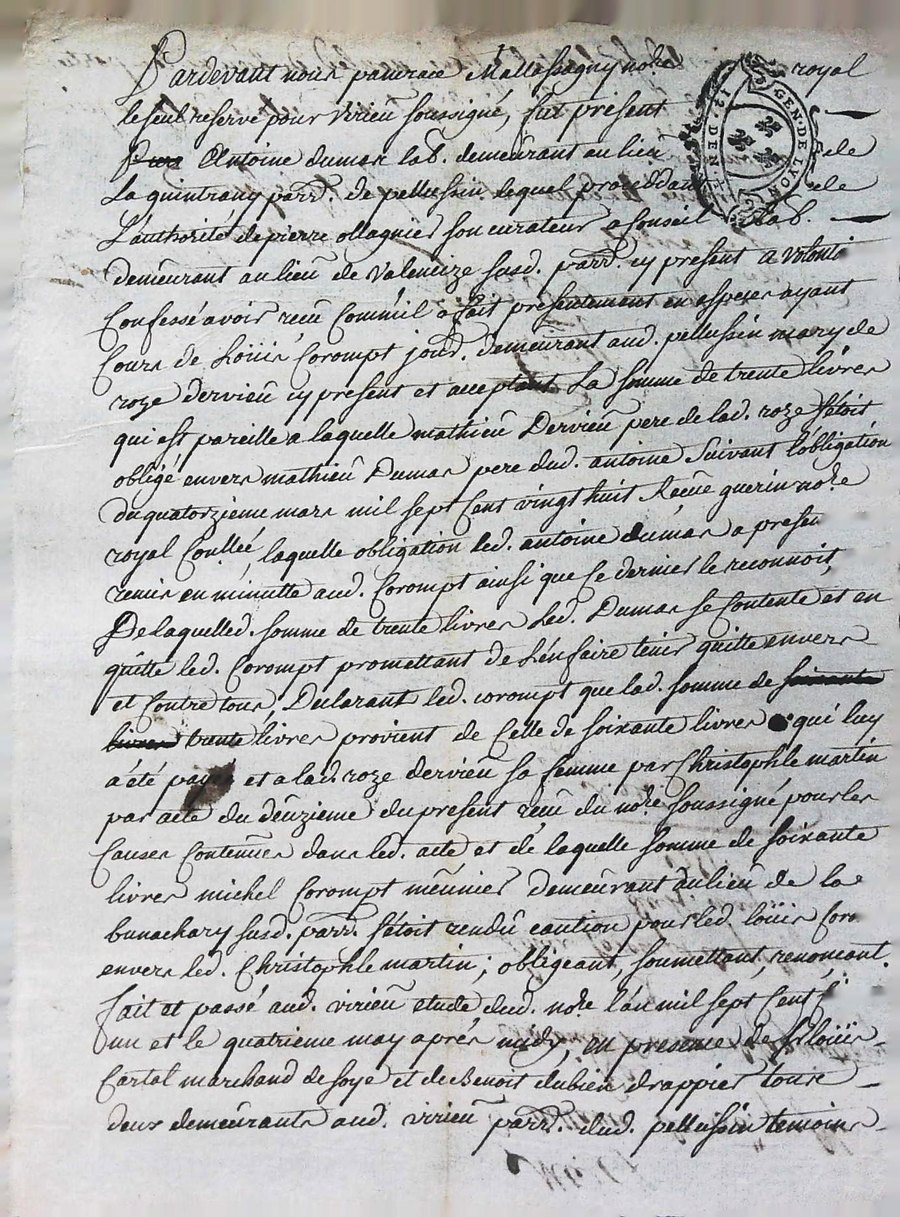 Pardevant nous pancrace Mallassagny no.re royal
le seul reservé pour Virieu soussigné, fut présent
Antoine dumas lab. demeurant au lieu de
La quintrany parr. de pellussin lequel proceddant de
L'authorité de pierre ollagnier son curateur a Conseil lab.
demeurant au lieu de Valencize susd. parr. cy present a volonté
Confessé avoir reçu Comm'il a fait présentement en especes ayant
Cours de Loüis Corompt jour. demeurant aud. pellussin mary de
roze dervieu cy present et acceptant La somme de trente livres
qui est pareille a laquelle mathieu Dervieu pere de lad. roze s'étoit
obligé envers mathieu Dumas pere dud. antoine suivant l'obligation
du quatorzieme mars mil sept Cent vingt huit Reçue guerin no.re
royal Coullée, laquelle obligation led. antoine dumas a presen
remis en minutte aud. Corompt ainsi que Ce dernier le reconnoit,
De laquelle d. somme de trente livres Led. Dumas se Contente et en
quitte led. Corompt promettant de L'en faire tenir quitte envers
et Contre tous, Declarant led. corompt que lad. somme de soixante
livres trente livres provient de Celle de soixante livres qui luy
a été payée et a lad. roze dervieu sa femme par Christophle martin
par acte du deuzieme du present reçu du no.re soussigné pour les
Causes Contenues dans led. acte et de laquelle somme de soixante
livres michel Corompt meunier demeurant au lieu de la
bunachary susd. parr. s'étoit rendu caution pour led. loüis Coro
envers led. Christophle martin; obligeant, soumettant, renoncant.
fait et passé aud. virieu etude dud. no.re l'an mil sept Cent
un et le quatrieme may après midy, en presence de sr. loüis
Cartal marchand de soye et de Benoit dubien drappier tous
deux demeurants aud. virieu parr. dud. pellussin temoins
GEN. DE LYON
12. DEN.